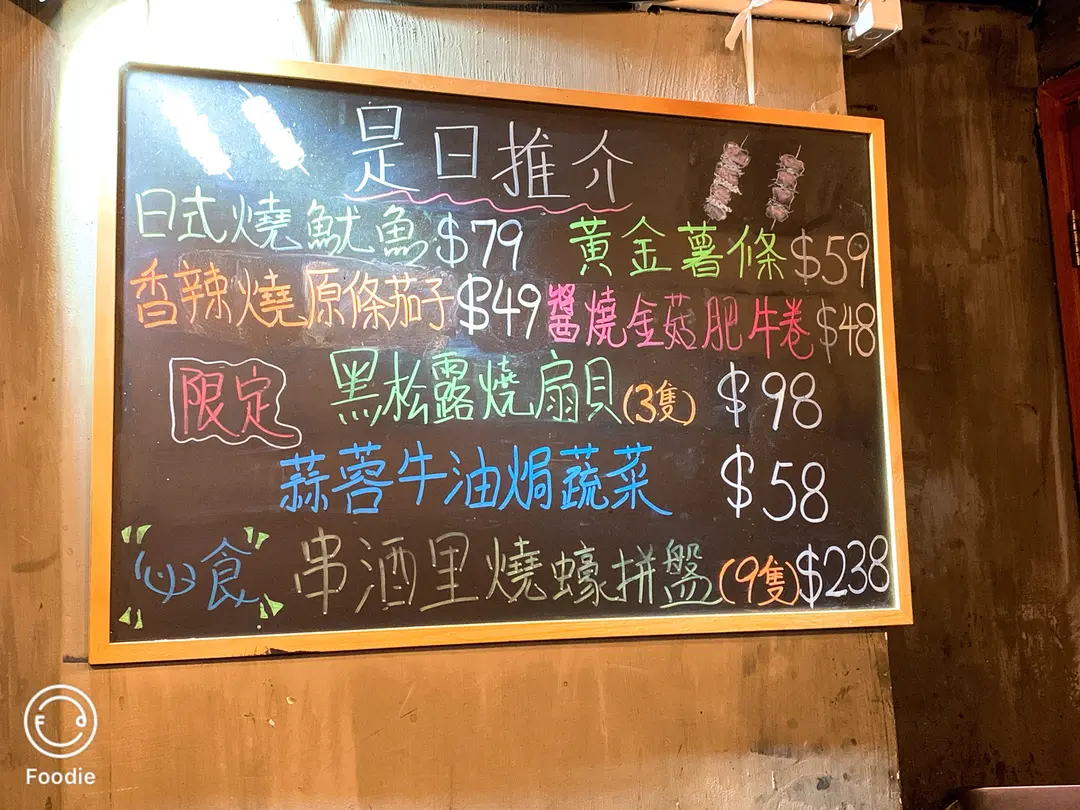 是日推介
日式燒魷魚$79 黃金薯條$59
香辣燒原條茄子$49 醬燒金菇肥牛卷$48
限定 黑松露燒扇貝(3隻) $98
蒜蓉牛油焗蔬菜 $58
必食 串酒里燒蠔拼盤(9隻)$238
Foodie